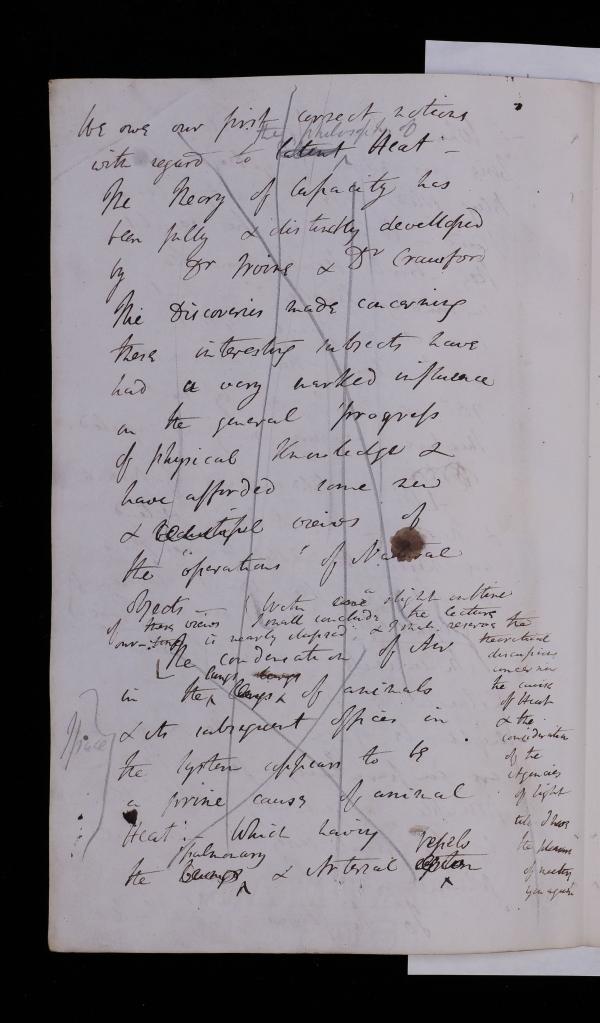 We owe our first correct notions
the philosophy of
with regard to latent Heat –
The Theory of Capacity has
been fully & distinctly developed
by Dr Irvine & Dr Crawford
The Discoveries made concerning
these interesting subjects have
had a very marked influence
on the general progress
of physical Knowledge &
have afforded some new
& beautiful views of
the "operations" of Natural
Objects – With a slight outline
of these views I shall conclude the lecture
our is nearly elapsed; & I shall reserve the
theoretical
discussions
concerning
the cause
of Heat
& the
consideration
of the
Agencies
of light
till I have
the pleasure
of meeting
you again
The condensation of Air
lungs
in the lungs of animals
& its subsequent offices in
the system appears to be
a prime cause of animal
Heat: – Which having
pulmonary vessels
the & Arterial system